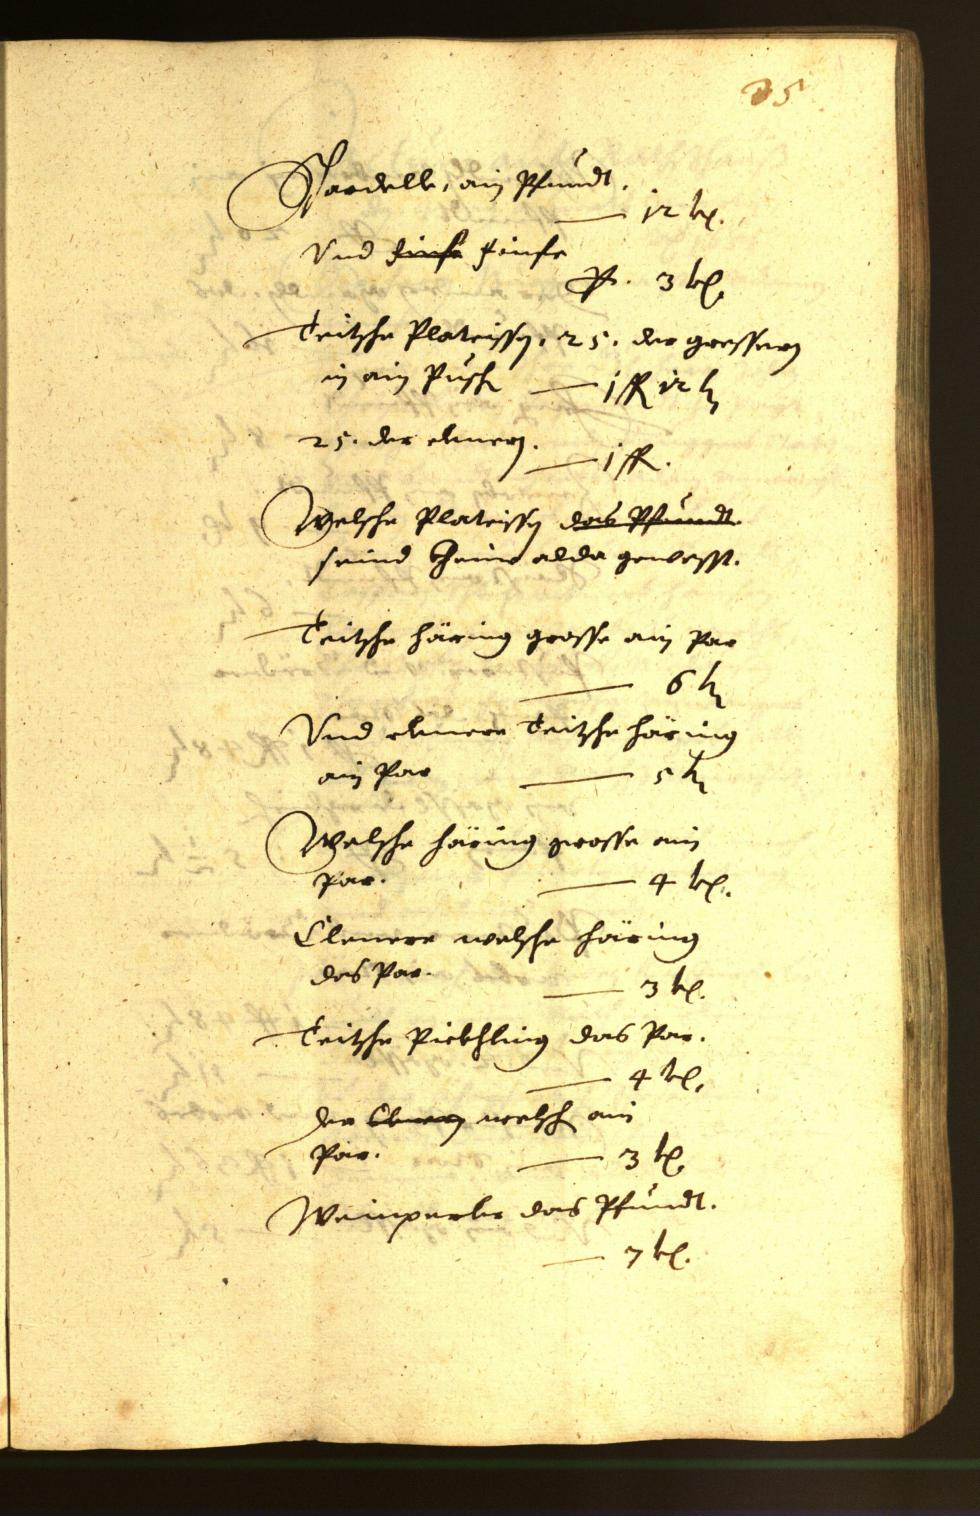 35
Sardelle, ain Pfundt.
— 12 kr.
Vnd finfe finfe
3 kr.
Teitsche Plateissn, 25. der gressern
in ain Pusch — 1 fl 12 kr
25. der clenern.
— 1 fl.
Welsche Plateissn das Pfundt
seind khaine alda gewesst.
Teitsche häring grosse ain Par
— 6 kr
Vnd clenere Teitsche häring
ain Par — 5 kr
Welsche häring grosse ain
Par. — 4 kr.
Clenere welsche häring
das Par.
— 3 kr.
Teitsche Pickhling das Par.
— 4 kr.
der clenern welsch ain
Par. — 3 kr.
Weinperler das Pfundt.
— 7 kr.